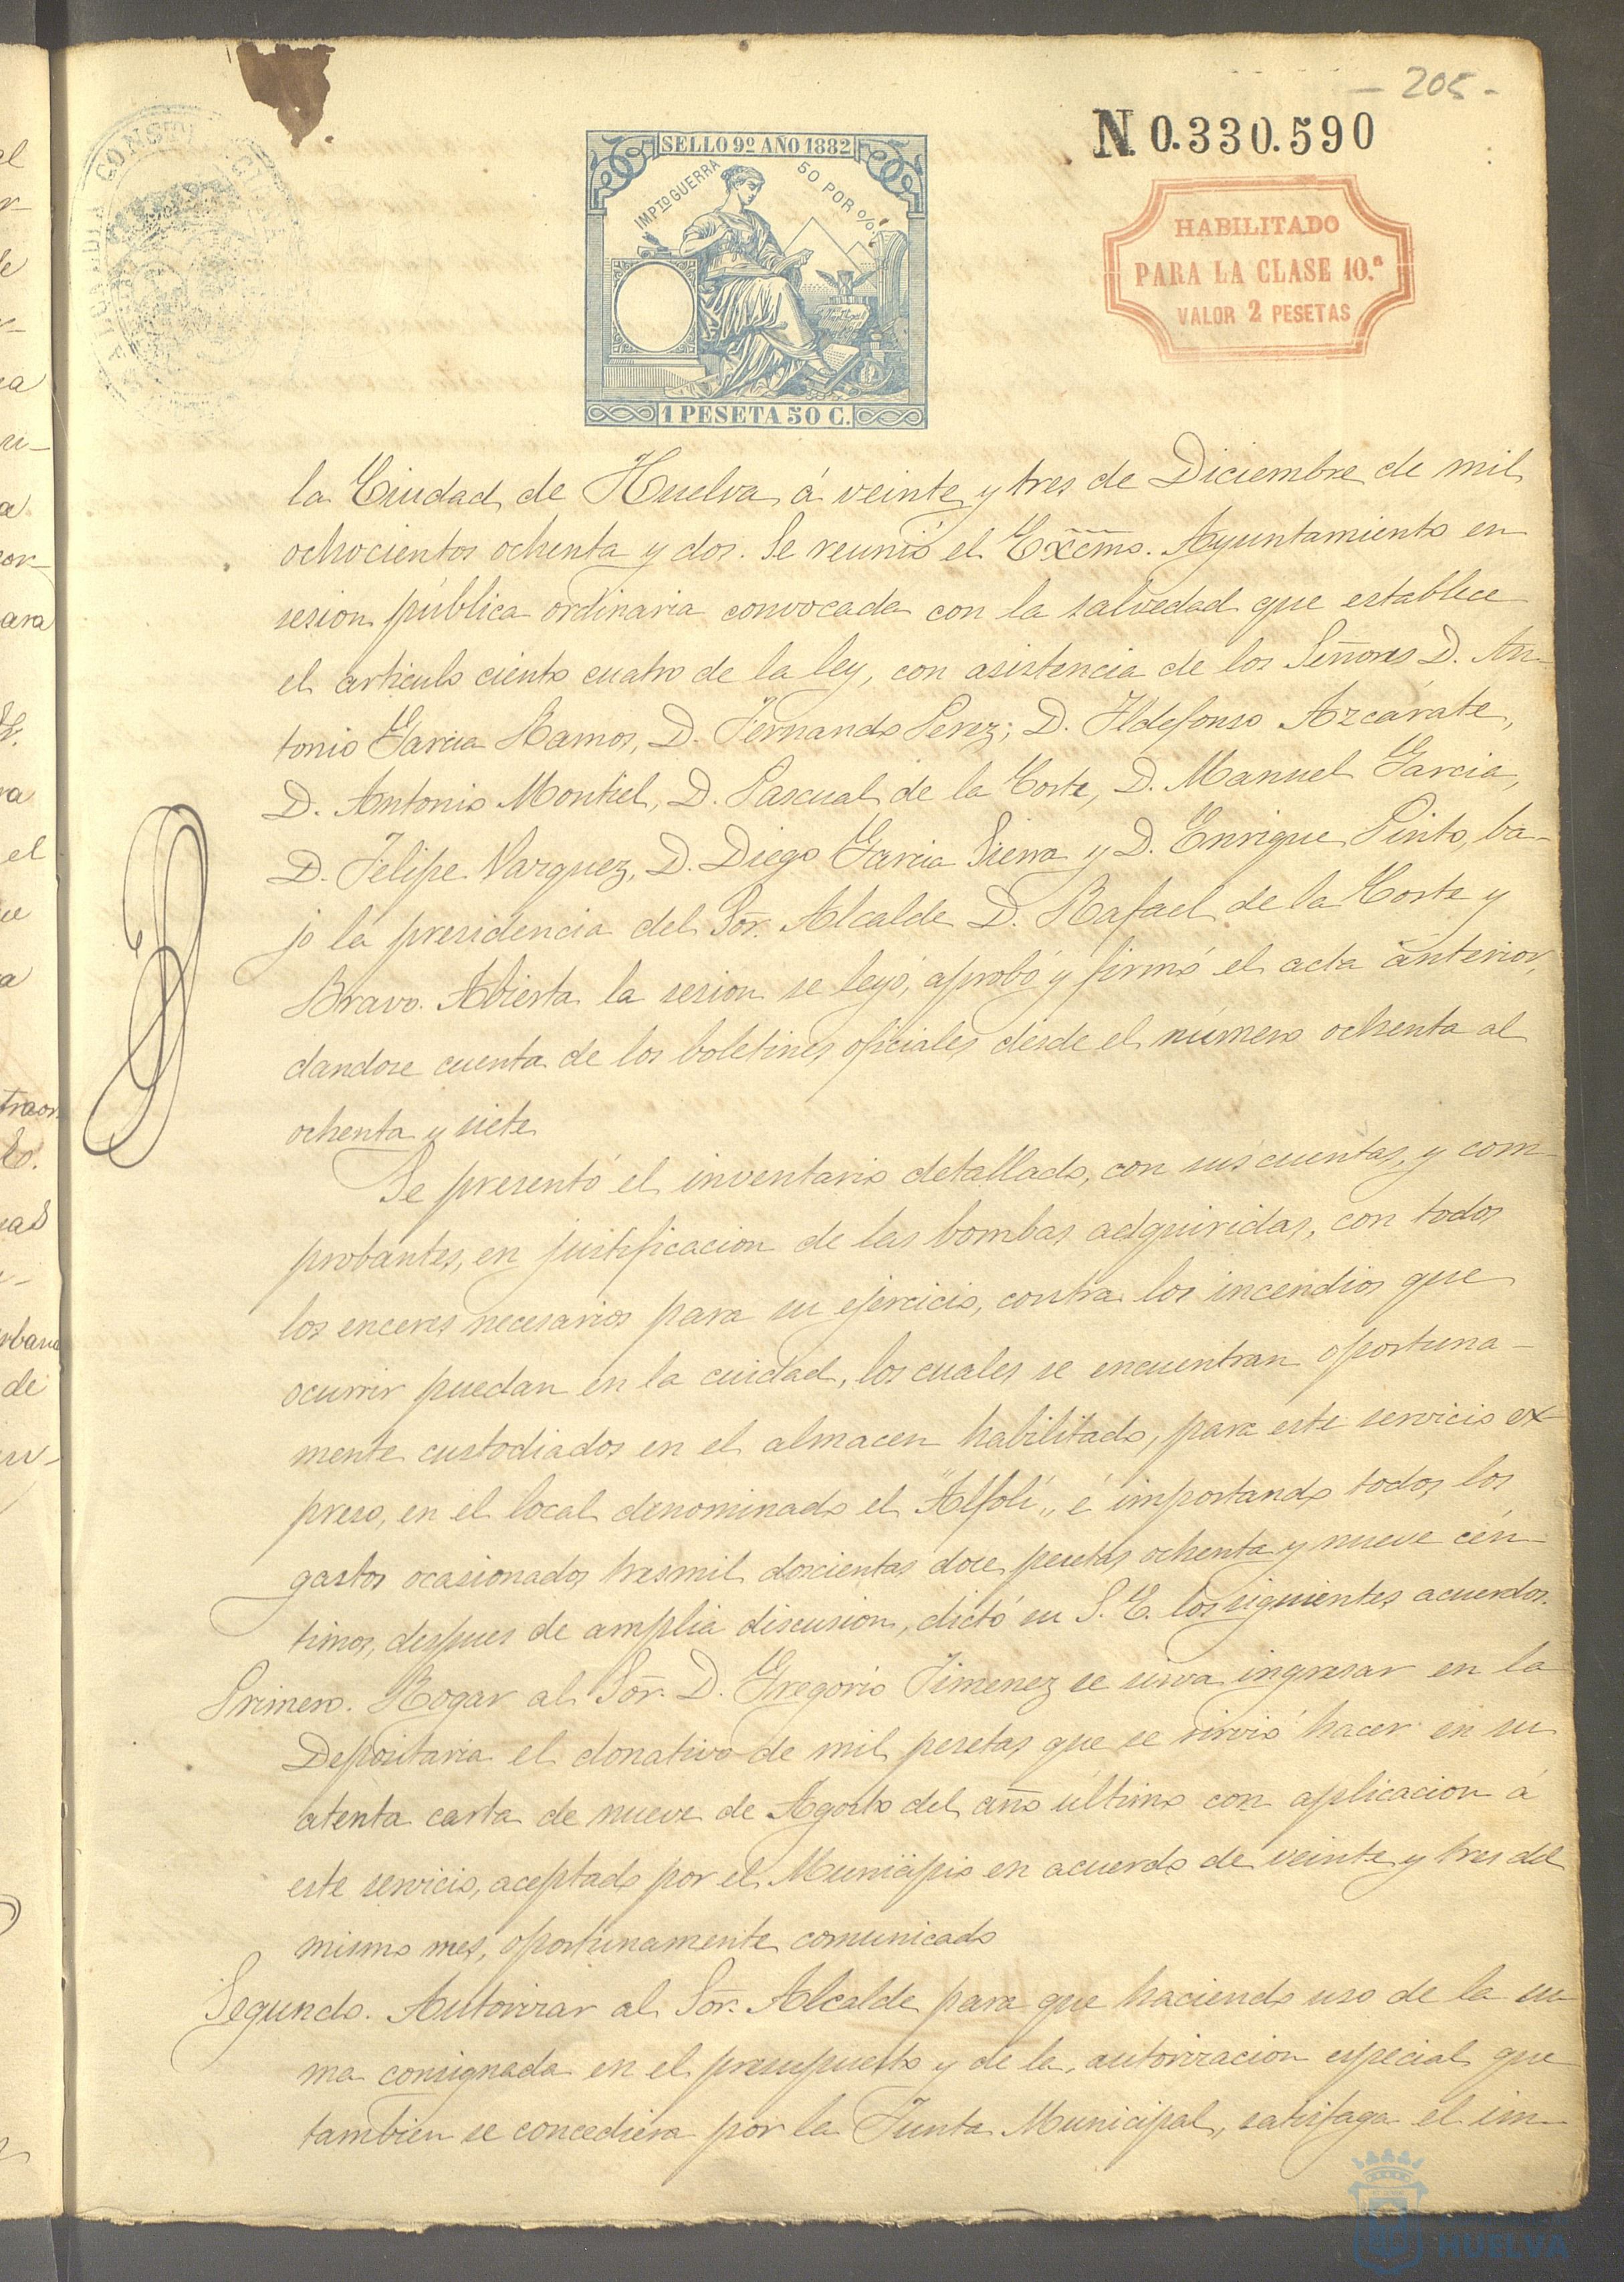 - 205 -
N. 0.330.590
SELLO 9º AÑO 1882
IMPTO GUERRA 50 POR %
1 PESETA 50 C.
HABILITADO
PARA LA CLASE 10.ª
VALOR 2 PESETAS
la Ciudad de Huelva á veinte y tres de Diciembre de mil
ochocientos ochenta y dos. Se reunió el Excmo. Ayuntamiento en
sesion pública ordinaria convocada con la salvedad que establece
el articulo ciento cuatro de la ley, con asistencia de los Señores D. An-
tonio Garcia Ramos, D. Fernando Perez; D. Ildefonso Azcárate,
D. Antonio Montiel, D. Pascual de la Corte, D. Manuel Garcia,
D. Felipe Vazquez, D. Diego Garcia Sierra y D. Enrique Pinto, ba-
jo la presidencia del Sor. Alcalde D. Rafael de la Corte y
Bravo. Abierta la sesion se leyó, aprobó y firmó el acta anterior,
dandose cuenta de los boletines oficiales desde el número ochenta al
ochenta y siete
Se presentó el inventario detallado, con sus cuentas, y com-
probantes, en justificacion de las bombas adquiridas, con todos
los enceres necesarios para su ejercicio, contra los incendios que
ocurrir puedan en la ciudad, los cuales se encuentran oportuna-
mente custodiados en el almacen habilitado, para este servicio ex-
preso, en el local denominado el "Alfolí„ é importando todos los
gastos ocasionados tresmil doscientas doce pesetas ochenta y nueve cén-
timos, despues de amplia discusion, dictó su S. E. los siguientes acuerdos.
Primero. Rogar al Sor. D. Gregorio Jimenez se sirva ingresar en la
Depositaria el donativo de mil pesetas que se sirvió hacer en su
atenta carta de nueve de Agosto del año último con aplicacion á
este servicio, aceptado por el Municipio en acuerdo de veinte y tres del
mismo mes, oportunamente comunicado
Segundo. Autorizar al Sor. Alcalde para que haciendo uso de la su-
ma consignada en el presupuesto y de la autorizacion especial que
tambien se concediera por la Junta Municipal, satisfaga el im-
HUELVA